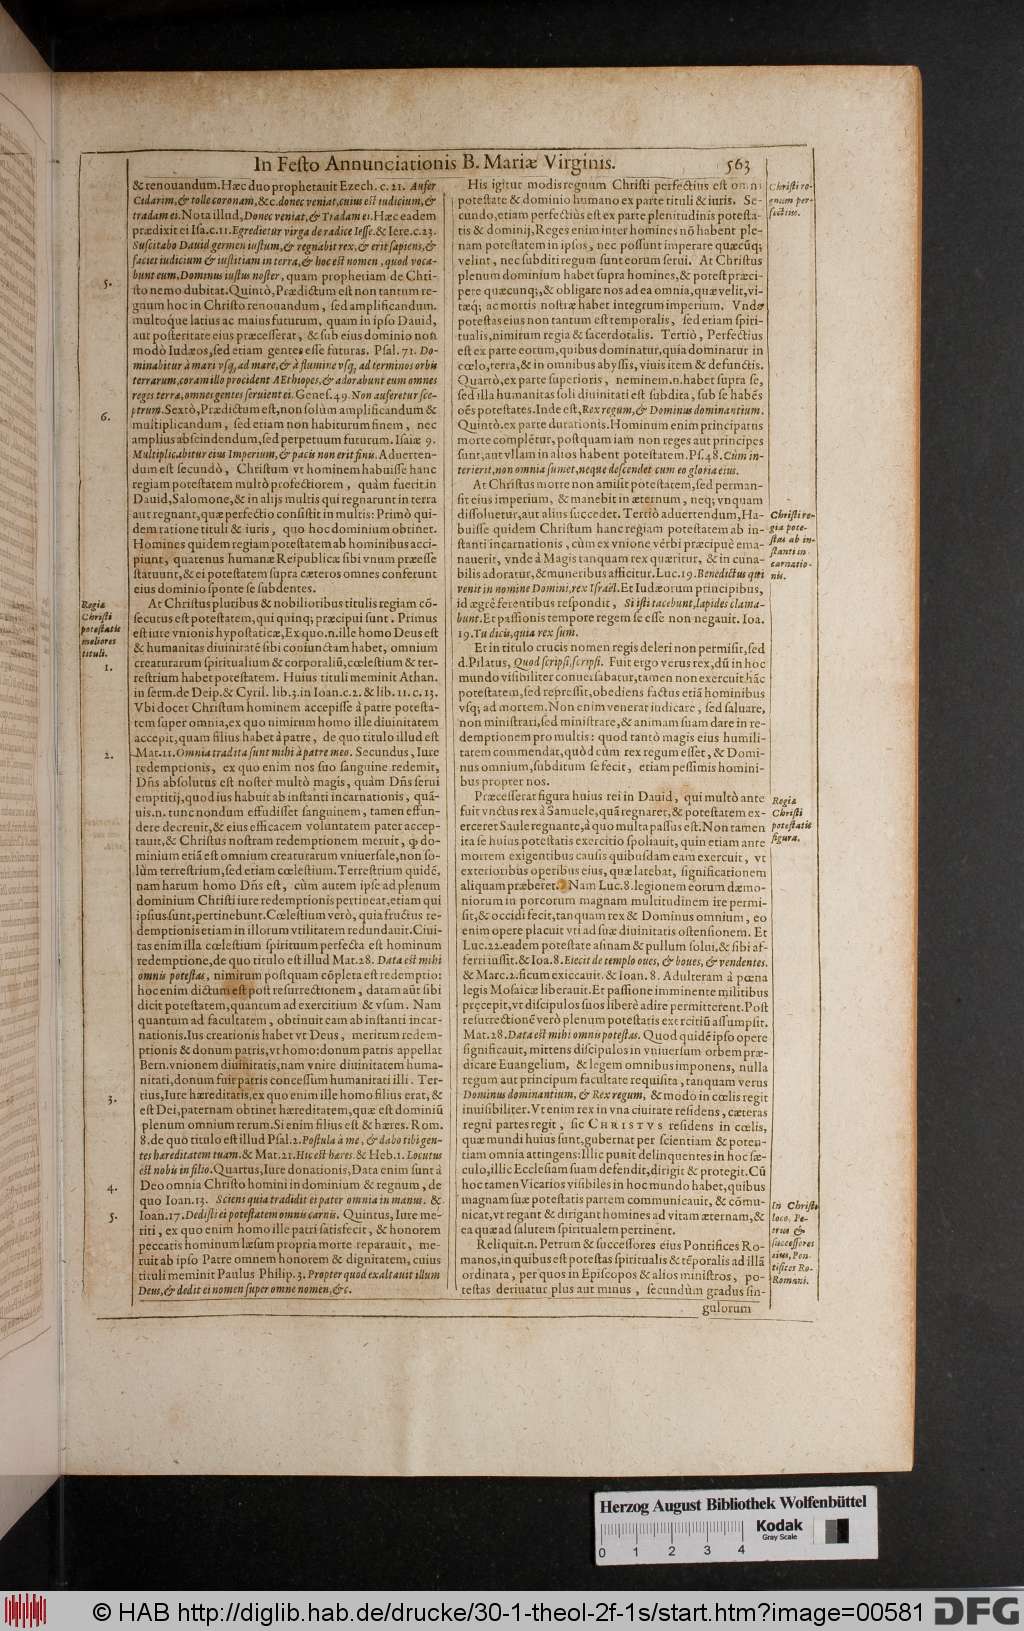 In Festo Annunciationis B. Mariæ Virginis. 563
& renouandum. Hæc duo prophetauit Ezech. c. 21. Aufer
Cidarim, & tolle coronam, &c. donec veniat, cuius est iudicium, &
tradam ei. Nota illud, Donec veniat, & Tradam ei. Hæc eadem
prædixit ei Isa. c. 11. Egredietur virga de radice Iesse. & Iere. c. 23.
Suscitabo Dauid germen iustum, & regnabit rex, & erit sapiens, &
faciet iudicium & iustitiam in terra, & hoc est nomen, quod voca-
bunt eum, Dominus iustus noster, quam prophetiam de Chri-
5.
sto nemo dubitat. Quintò, Prædictum est non tantum re-
gnum hoc in Christo renouandum, sed amplificandum.
multoq́ue latius ac maius futurum, quam in ipso Dauid,
aut posteritate eius præcesserat, & sub eius dominio non
modò Iudæos, sed etiam gentes esse futuras. Psal. 71. Do-
minabitur à mari vsq́, ad mare, & à flumine vsq́, ad terminos orbis
terrarum, coram illo procident AEthiopes, & adorabunt eum omnes
reges terræ, omnes gentes seruient ei. Genes. 49. Non auferetur sce-
6.
ptrum. Sextò, Prædictum est, non solùm amplificandum &
multiplicandum, sed etiam non habiturum finem, nec
amplius abscindendum, sed perpetuum futurum. Isaiæ 9.
Multiplicabitur eius Imperium, & pacis non erit finis. Aduerten-
dum est secundò, Christum vt hominem habuisse hanc
regiam potestatem multò profectiorem, quàm fuerit in
Dauid, Salomone, & in alijs multis qui regnarunt in terra
aut regnant, quæ perfectio consistit in multis: Primò qui-
dem ratione tituli & iuris, quo hoc dominium obtinet.
Homines quidem regiam potestatem ab hominibus acci-
piunt, quatenus humanæ Reipublicæ sibi vnum præesse
statuunt, & ei potestatem supra cæteros omnes conferunt
eius dominio sponte se subdentes.
Regiæ
Christi
potestatis
meliores
tituli.
1.
At Christus pluribus & nobilioribus titulis regiam cō-
secutus est potestatem, qui quinq; præcipui sunt. Primus
est iure vnionis hypostaticæ, Ex quo. n. ille homo Deus est
& humanitas diuinitatē sibi coniunctam habet, omnium
creaturarum spiritualium & corporaliū, cœlestium & ter-
restrium habet potestatem. Huius tituli meminit Athan.
in serm. de Deip. & Cyril. lib. 3. in Ioan. c. 2. & lib. 11. c. 13.
Vbi docet Christum hominem accepisse à patre potesta-
tem super omnia, ex quo nimirum homo ille diuinitatem
accepit, quam filius habet à patre, de quo titulo illud est
2.
Mat. 11. Omnia tradita sunt mihi à patre meo. Secundus, Iure
redemptionis, ex quo enim nos suo sanguine redemit,
Dñs absolutus est noster multò magis, quàm Dñs serui
emptitij, quod ius habuit ab instanti incarnationis, quā-
uis. n. tunc nondum effudisset sanguinem, tamen effun-
dere decreuit, & eius efficacem voluntatem pater accep-
tauit, & Christus nostram redemptionem meruit, ꝙ do-
minium etiā est omnium creaturarum vniuersale, non so-
lùm terrestrium, sed etiam cœlestium. Terrestrium quidē,
nam harum homo Dñs est, cùm autem ipse ad plenum
dominium Christi iure redemptionis pertineat, etiam qui
ipsius sunt, pertinebunt. Cœlestium verò, quia fructus re-
demptionis etiam in illorum vtilitatem redundauit. Ciui-
tas enim illa cœlestium spirituum perfecta est hominum
redemptione, de quo titulo est illud Mat. 28. Data est mihi
omnis potestas, nimirum postquam cōpleta est redemptio:
hoc enim dictum est post resurrectionem, datam aūt sibi
dicit potestatem, quantum ad exercitium & vsum. Nam
quantum ad facultatem, obtinuit eam ab instanti incar-
nationis. Ius creationis habet vt Deus, meritum redem-
ptionis & donum patris, vt homo: donum patris appellat
Bern. vnionem diuinitatis, nam vnire diuinitatem huma-
nitati, donum fuit patris concessum humanitati illi. Ter-
3.
tius, Iure hæreditatis, ex quo enim ille homo filius erat, &
est Dei, paternam obtinet hæreditatem, quæ est dominiū
plenum omnium rerum. Si enim filius est & hæres. Rom.
8. de quo titulo est illud Psal. 2. Postula à me, & dabo tibi gen-
tes hæreditatem tuam. & Mat. 21. Hic est hæres. & Heb. 1. Locutus
est nobis in filio. Quartus, Iure donationis, Data enim sunt à
4.
Deo omnia Christo homini in dominium & regnum, de
quo Ioan. 13. Sciens quia tradidit ei pater omnia in manus. &
5.
Ioan. 17. Dedisti ei potestatem omnis carnis. Quintus, Iure me-
riti, ex quo enim homo ille patri satisfecit, & honorem
peccatis hominum læsum propria morte reparauit, me-
ruit ab ipso Patre omnem honorem & dignitatem, cuius
tituli meminit Paulus Philip. 3. Propter quod exaltauit illum
Deus, & dedit ei nomen super omne nomen, &c.
Christi re-
gnum per-
fectius.
His igitur modis regnum Christi perfectius est omni
potestate & dominio humano ex parte tituli & iuris. Se-
cundo, etiam perfectiùs est ex parte plenitudinis potesta-
tis & dominij, Reges enim inter homines nō habent ple-
nam potestatem in ipsos, nec possunt imperare quæcūq;
velint, nec subditi regum sunt eorum serui. At Christus
plenum dominium habet supra homines, & potest præci-
pere quæcunq;, & obligare nos ad ea omnia, quæ velit, vi-
tæq; ac mortis nostræ habet integrum imperium. Vnde
potestas eius non tantum est temporalis, sed etiam spiri-
tualis, nimirum regia & sacerdotalis. Tertiò, Perfectius
est ex parte eorum, quibus dominatur, quia dominatur in
cœlo, terra, & in omnibus abyssis, viuis item & defunctis.
Quartò, ex parte superioris, neminem. n. habet supra se,
sed illa humanitas soli diuinitati est subdita, sub se habēs
oēs potestates. Inde est, Rex regum, & Dominus dominantium.
Quintò. ex parte durationis. Hominum enim principatus
morte complētur, postquam iam non reges aut principes
sunt, aut vllam in alios habent potestatem. Ps. 48. Cùm in-
terierit, non omnia sumet, neque descendet cum eo gloria eius.
At Christus morte non amisit potestatem, sed perman-
sit eius imperium, & manebit in æternum, neq; vnquam
Christi re-
gia pote-
stas ab in-
stanti in-
carnatio-
nis.
dissoluetur, aut alius succedet. Tertiò aduertendum, Ha-
buisse quidem Christum hanc regiam potestatem ab in-
stanti incarnationis, cùm ex vnione verbi præcipuè ema-
nauerit, vnde à Magis tanquam rex quæritur, & in cuna-
bilis adoratur, & muneribus afficitur. Luc. 19. Benedictus qui
venit in nomine Domini, rex Israël. Et Iudæorum principibus,
id ægrè ferentibus respondit, Si isti tacebunt, lapides clama-
bunt. Et passionis tempore regem se esse non negauit. Ioa.
19. Tu dicis, quia rex sum.
Et in titulo crucis nomen regis deleri non permisit, sed
d. Pilatus, Quod scripsi, scripsi. Fuit ergo verus rex, dū in hoc
mundo visibiliter conuersabatur, tamen non exercuit hāc
potestatem, sed repressit, obediens factus etiā hominibus
vsq; ad mortem. Non enim venerat iudicare, sed saluare,
non ministrari, sed ministrare, & animam suam dare in re-
demptionem pro multis: quod tantò magis eius humili-
tatem commendat, quòd cùm rex regum esset, & Domi-
nus omnium, subditum se fecit, etiam pessimis homini-
bus propter nos.
Regiæ
Christi
potestatis
figura.
Præcesserat figura huius rei in Dauid, qui multò ante
fuit vnctus rex à Samuele, quā regnaret, & potestatem ex-
erceret Saule regnante, à quo multa passus est. Non tamen
ita se huius potestatis exercitio spoliauit, quin etiam ante
mortem exigentibus causis quibusdam eam exercuit, vt
exterioribus operibus eius, quæ latebat, significationem
aliquam præberet. Nam Luc. 8. legionem eorum dæmo-
niorum in porcorum magnam multitudinem ire permi-
sit, & occidi fecit, tanquam rex & Dominus omnium, eo
enim opere placuit vti ad suæ diuinitatis ostensionem. Et
Luc. 22. eadem potestate asinam & pullum solui, & sibi af-
ferri iussit. & Ioa. 8. Eiecit de templo oues, & boues, & vendentes.
& Marc. 2. ficum exiccauit. & Ioan. 8. Adulteram à pœna
legis Mosaicæ liberauit. Et passione imminente militibus
præcepit, vt discipulos suos liberè adire permitterent. Post
resurrectionē verò plenum potestatis exercitiū assumpsit.
Mat. 28. Data est mihi omnis potestas. Quod quidē ipso opere
significauit, mittens discipulos in vniuersum orbem præ-
dicare Euangelium, & legem omnibus imponens, nulla
regum aut principum facultate requisita, tanquam verus
Dominus dominantium, & Rex regum, & modo in cœlis regit
inuisibiliter. Vt enim rex in vna ciuitate residens, cæteras
regni partes regit, sic CHRISTVS residens in cœlis,
quæ mundi huius sunt, gubernat per scientiam & poten-
tiam omnia attingens: Illic punit delinquentes in hoc sæ-
culo, illic Ecclesiam suam defendit, dirigit & protegit. Cū
hoc tamen Vicarios visibiles in hoc mundo habet, quibus
magnam suæ potestatis partem communicauit, & cōmu-
In Christi
loco. Pe-
trus &
successores
eius, Pon-
tifices Ro-
Romani.
nicat, vt regant & dirigant homines ad vitam æternam, &
ea quæ ad salutem spiritualem pertinent.
Reliquit. n. Petrum & successores eius Pontifices Ro-
manos, in quibus est potestas spiritualis & tēporalis ad illā
ordinata, per quos in Episcopos & alios ministros, po-
testas deriuatur plus aut minus, secundùm gradus sin-
gulorum
Herzog August Bibliothek Wolfenbüttel
0 1 2 3 4
Kodak
Gray Scale
© HAB http://diglib.hab.de/drucke/30-1-theol-2f-1s/start.htm?image=00581
DFG